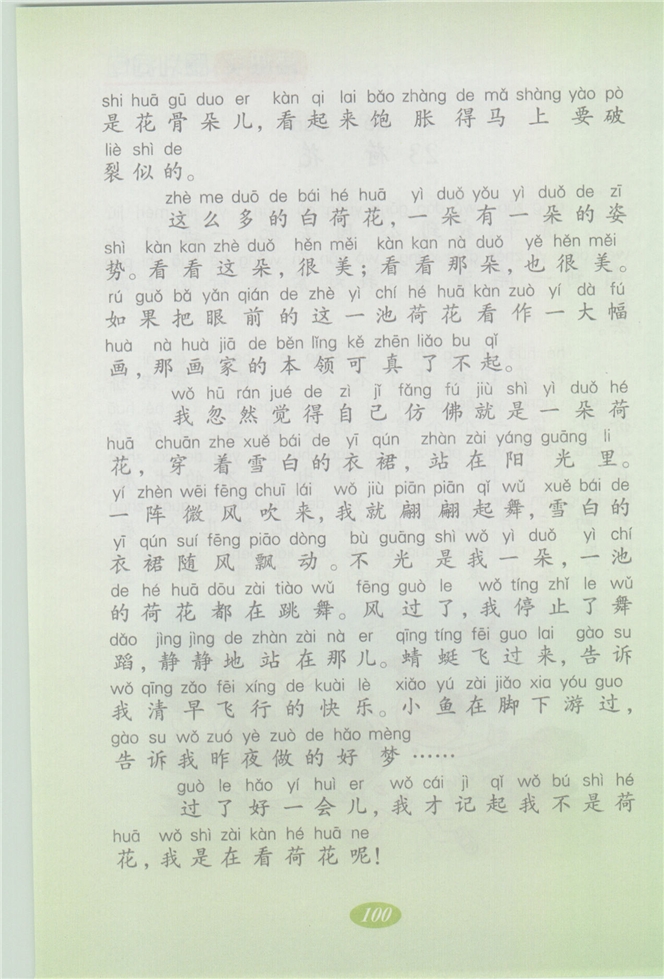 shì huā gū duo er kàn qi lai bǎo zhàng de mǎ shàng yào pò
是花骨朵儿，看起来饱胀得马上要破
liè shì de
裂似的。
zhè me duō de bái hé huā yì duǒ yǒu yì duǒ de zī
这么多的白荷花，一朵有一朵的姿
shì kàn kan zhè duǒ hěn měi kàn kan nà duǒ yě hěn měi
势。看看这朵，很美；看看那朵，也很美。
rú guǒ bǎ yǎn qián de zhè yì chí hé huā kàn zuò yí dà fú
如果把眼前的这一池荷花看作一大幅
huà nà huà jiā de běn lǐng kě zhēn liǎo bu qǐ
画，那画家的本领可真了不起。
wǒ hū rán jué de zì jǐ fǎng fú jiù shì yì duǒ hé
我忽然觉得自己仿佛就是一朵荷
huā chuān zhe xuě bái de yī qún zhàn zài yáng guāng li
花，穿着雪白的衣裙，站在阳光里。
yí zhèn wēi fēng chuī lái wǒ jiù piān piān qǐ wǔ xuě bái de
一阵微风吹来，我就翩翩起舞，雪白的
yī qún suí fēng piāo dòng bù guāng shì wǒ yì duǒ yì chí
衣裙随风飘动。不光是我一朵，一池
de hé huā dōu zài tiào wǔ fēng guò le wǒ tíng zhǐ le wǔ
的荷花都在跳舞。风过了，我停止了舞
dǎo jìng jìng de zhàn zài nà er qīng tíng fēi guo lai gào su
蹈，静静地站在那儿。蜻蜓飞过来，告诉
wǒ qīng zǎo fēi xíng de kuài lè xiǎo yú zài jiǎo xia yóu guo
我清早飞行的快乐。小鱼在脚下游过，
gào su wǒ zuó yè zuò de hǎo mèng
告诉我昨夜做的好梦……
guò le hǎo yí huì er wǒ cái jì qǐ wǒ bú shì hé
过了好一会儿，我才记起我不是荷
huā wǒ shì zài kàn hé huā ne
花，我是在看荷花呢！
100